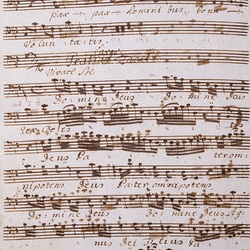 pax pax homini bus bonæ
Voluntatis.
Vivace Soli
Domine Deus Domine Deus
Rex Coeles
Deus Pa terom:
nipotens Deus Pater omnipotens
Domine Deus Domine Deus Ag
nus Dei Filius Pa